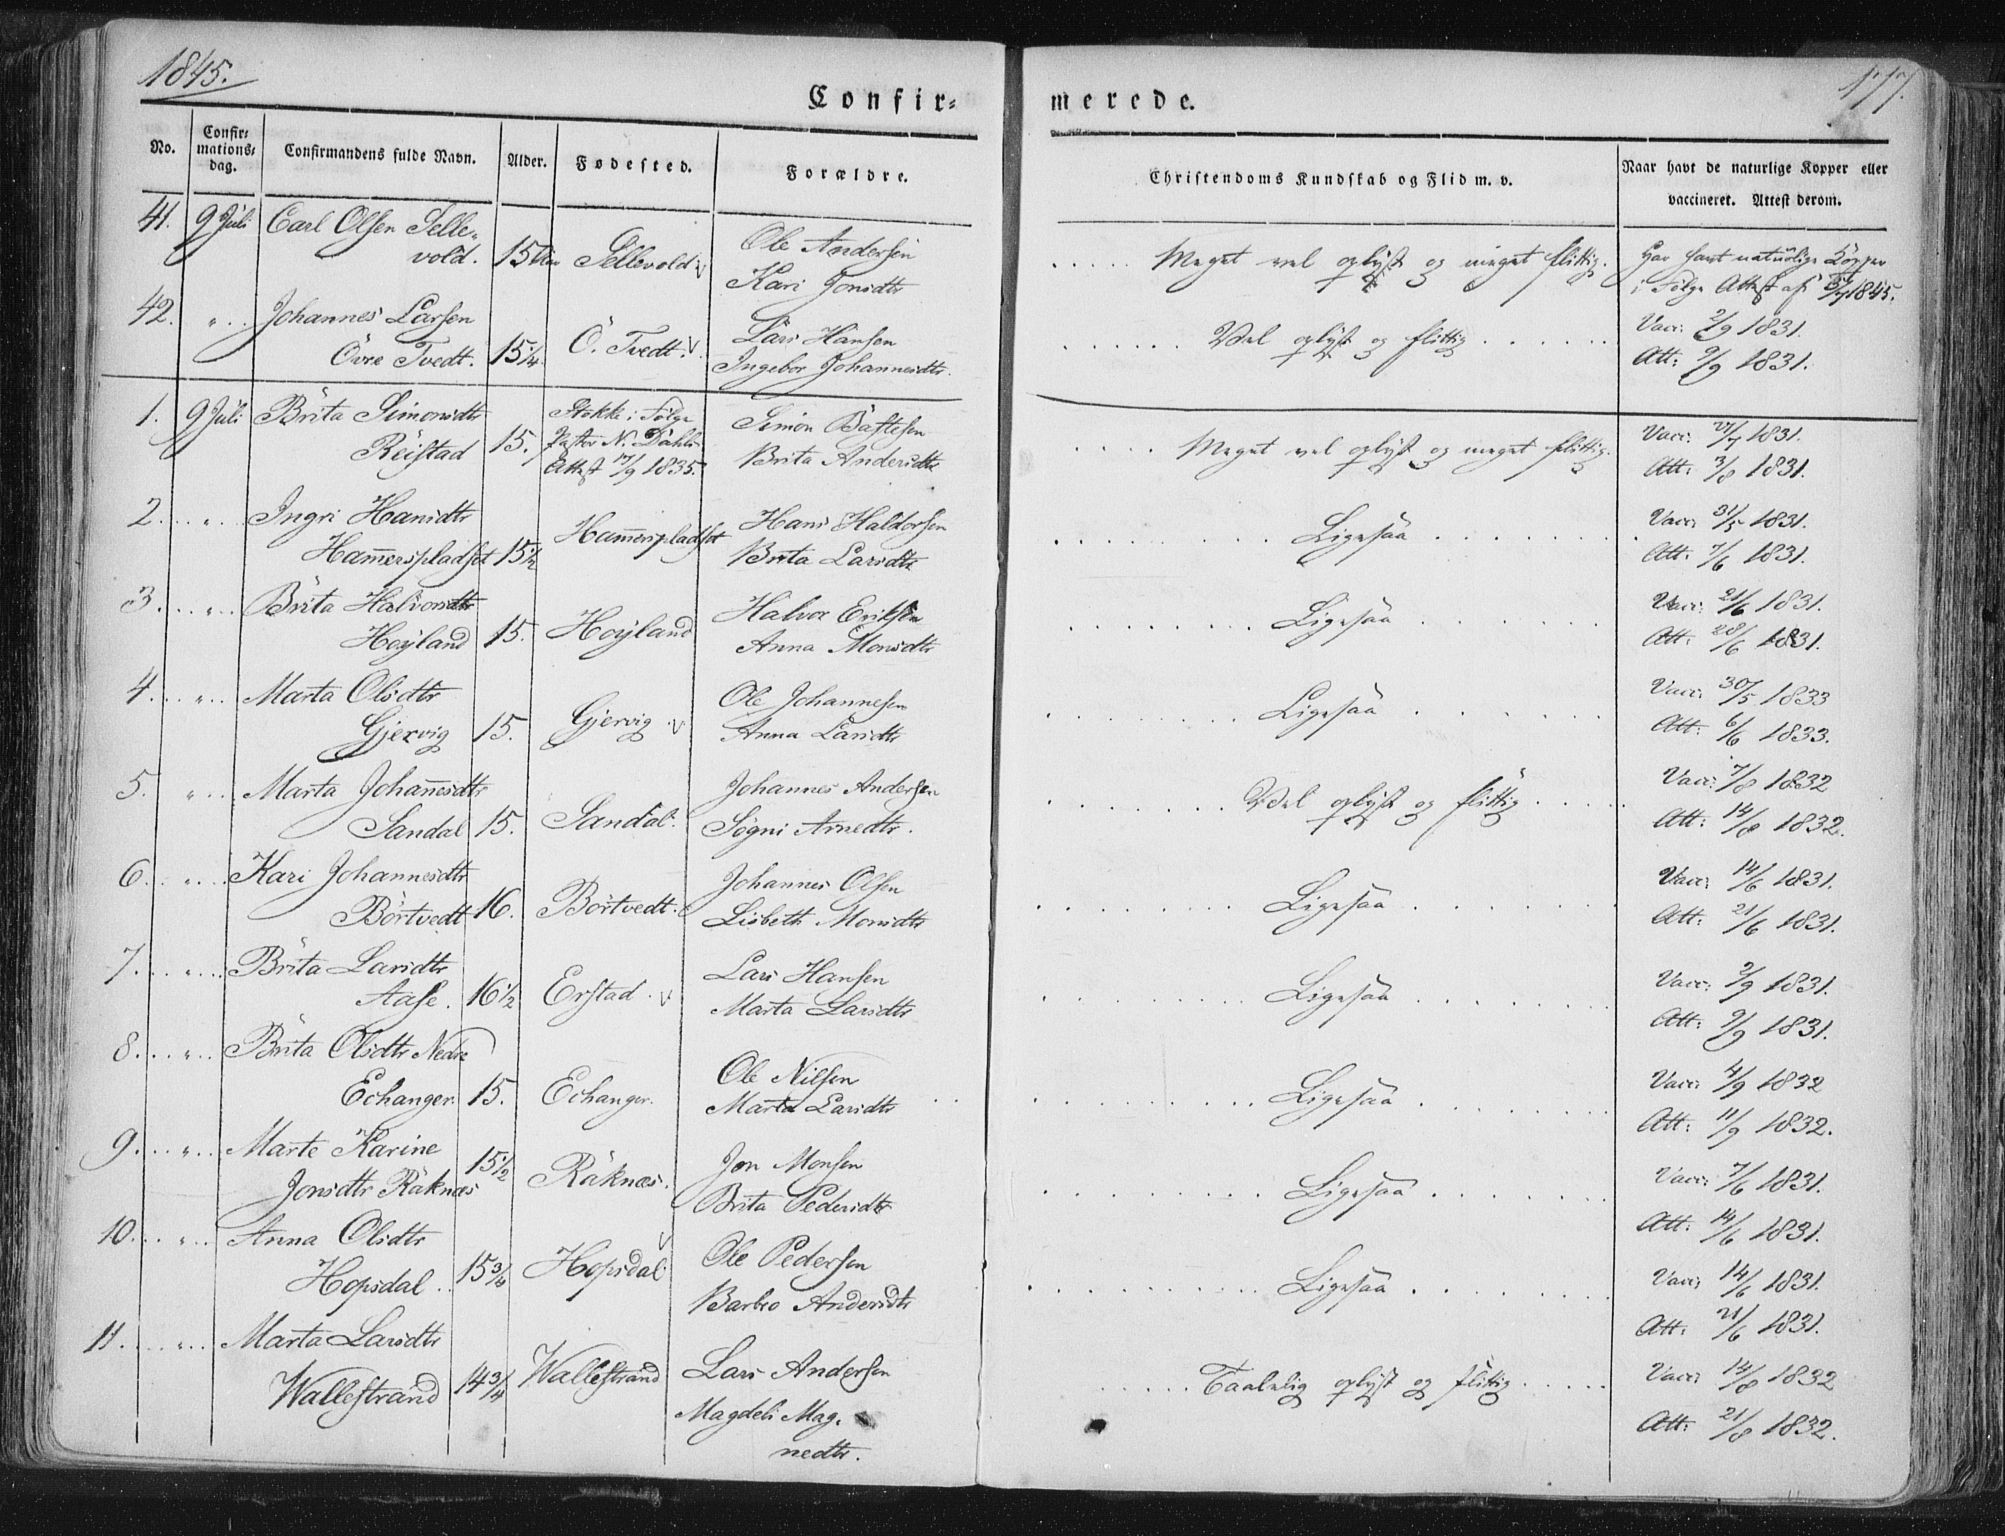 1845.
177.
Confir=
merede.
No.
Confir=
mations=
dag.
Confirmandens fulde Navn.
Alder.
Fødested.
Forældre.
Christendoms Kundskab og Flid m. v.
Naar havt de naturlige Kopper eller
vaccineret. Attest derom.
41. 9 Juli Carl Olsen Selle-
vold. 15 Aar Sellevold Ole Andersen
Kari Jonsdtr
..... Meget vel oplyst og meget flittig.
Har havt naturlige Kopper
i Følge Attest af 1845.
42. " .. Johannes Larsen
Övre Tvedt. 15 1/4. Ö. Tvedt. Lars Hansen
Ingebor Johannesdtr.
...... Vel oplyst og flittig ......
Vacc: 2/9 1831.
Att: 9/9 1831.
1. 9 Juli Brita Simonsdtr
Reistad 15. Stokke i Følge
Pastor N. Dahls
Attest 17/9 1835.
Simon Baltesen
Brita Andersdtr
.... Meget vel oplyst og meget flittig.
Vacc: 27/7 1831.
Att: 3/8 1831.
2... " .. Ingri Hansdtr
Ham̅erspladset 15 1/2 Ham̅erspladset Hans Haldorsen
Brita Larsdtr
........ Ligesaa ........
Vacc: 31/5 1831.
Att: 7/6 1831.
3... " .. Brita Halvorsdtr
Hoyland 15. Hoyland Halvor Eriksen
Anna Monsdtr
........ Ligesaa ........
Vacc: 21/6 1831.
Att: 28/6 1831.
4... " .. Marta Olsdtr
Gjervig 15. Gjervig Ole Johannesen
Anna Larsdtr
........ Ligesaa ........
Vacc: 30/5 1833
Att: 6/6 1833.
5. " .. Marta Johan̅esdtr
Sandal 15. Sandal. Johannes Andersen
Sögni Arnedtr.
........ Vel oplyst og flittig .....
Vacc: 7/8 1832
Att: 14/8 1832.
6.. " ... Kari Johannesdtr
Börtvedt 16. Börtvedt. Johannes Olsen
Lisbeth Monsdtr
........ Ligesaa ........
Vacc: 14/6 1831.
Att: 21/6 1831.
7... " ... Brita Larsdtr
Aase. 16 1/2 Erstad. Lars Hansen
Marta Larsdtr
........ Ligesaa ........
Vacc: 2/9 1831.
Att: 9/9 1831.
8... " .. Brita Olsdtr Nedre
Echanger 15. Echanger. Ole Nilsen
Marta Larsdtr
........ Ligesaa ........
Vacc: 4/9 1832
Att: 11/9 1832.
9... " ... Marte Karine
Jonsdtr Räknæs 15 1/2 Räknæs. Jon Monsen
Brita Pedersdtr
........ Ligesaa ........
Vacc: 7/6 1831.
Att: 14/6 1831.
10... " .. Anna Olsdtr
Hopsdal .. 15 3/4 Hopsdal Ole Pedersen
Barbro Andersdtr
........ Ligesaa ........
Vacc: 14/6 1831.
Att: 21/6 1831.
11.... " ... Marta Larsdtr
Wallestrand 14 3/4 Wallestrand Lars Andersen
Magdeli Mag-
nedtr.
...... Taalelig oplyst og flittig .....
Vacc: 14/8 1832
Att: 21/8 1832.